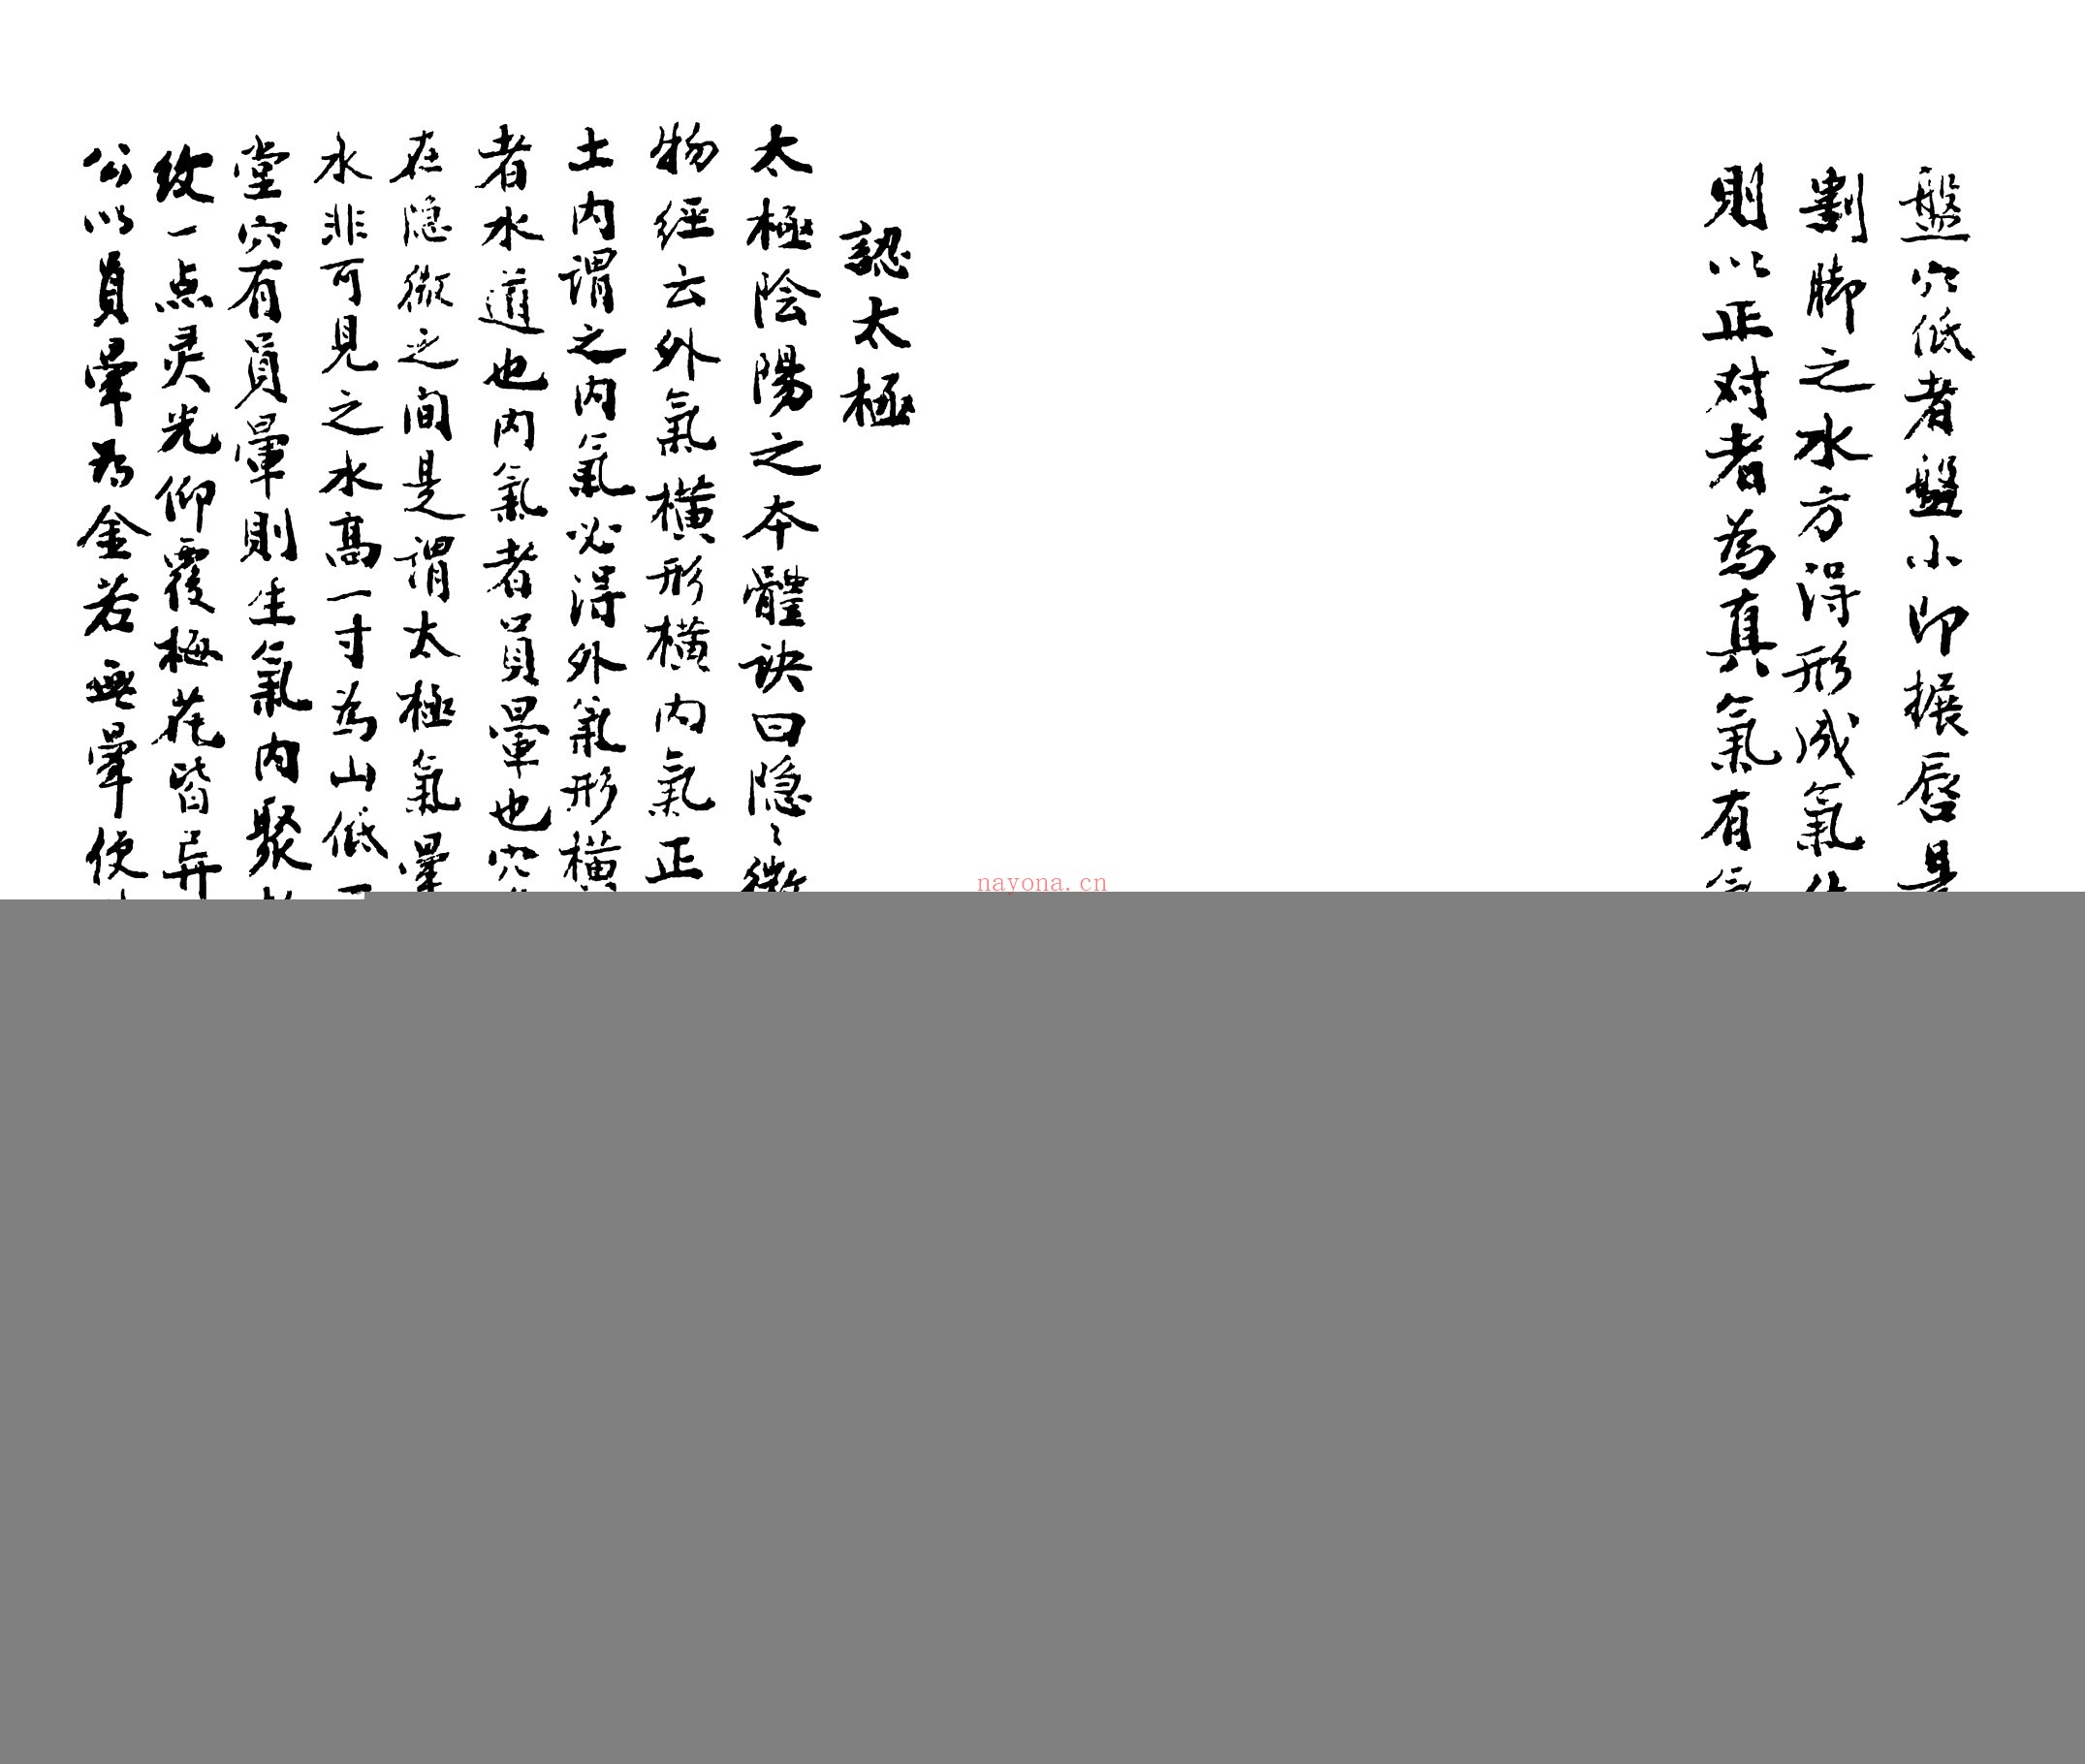 盤穴低者盤小印振唇是
劃脚之水方得形成氣
則以正対者為真氣有
認太極
太極陰陽之本體訣曰隐〻微
物經云外氣橫形橫内氣正
土内謂之内氣必得外氣形橫
者水道也内氣者員暈也穴
在隱微之间是謂太極氣暈
水非可見之水高一寸為山低一
堂穴有員暈則生氣内聚
紋一点灵光仰覆極花皆异
以員暈为金若無暈便
nayona.cn